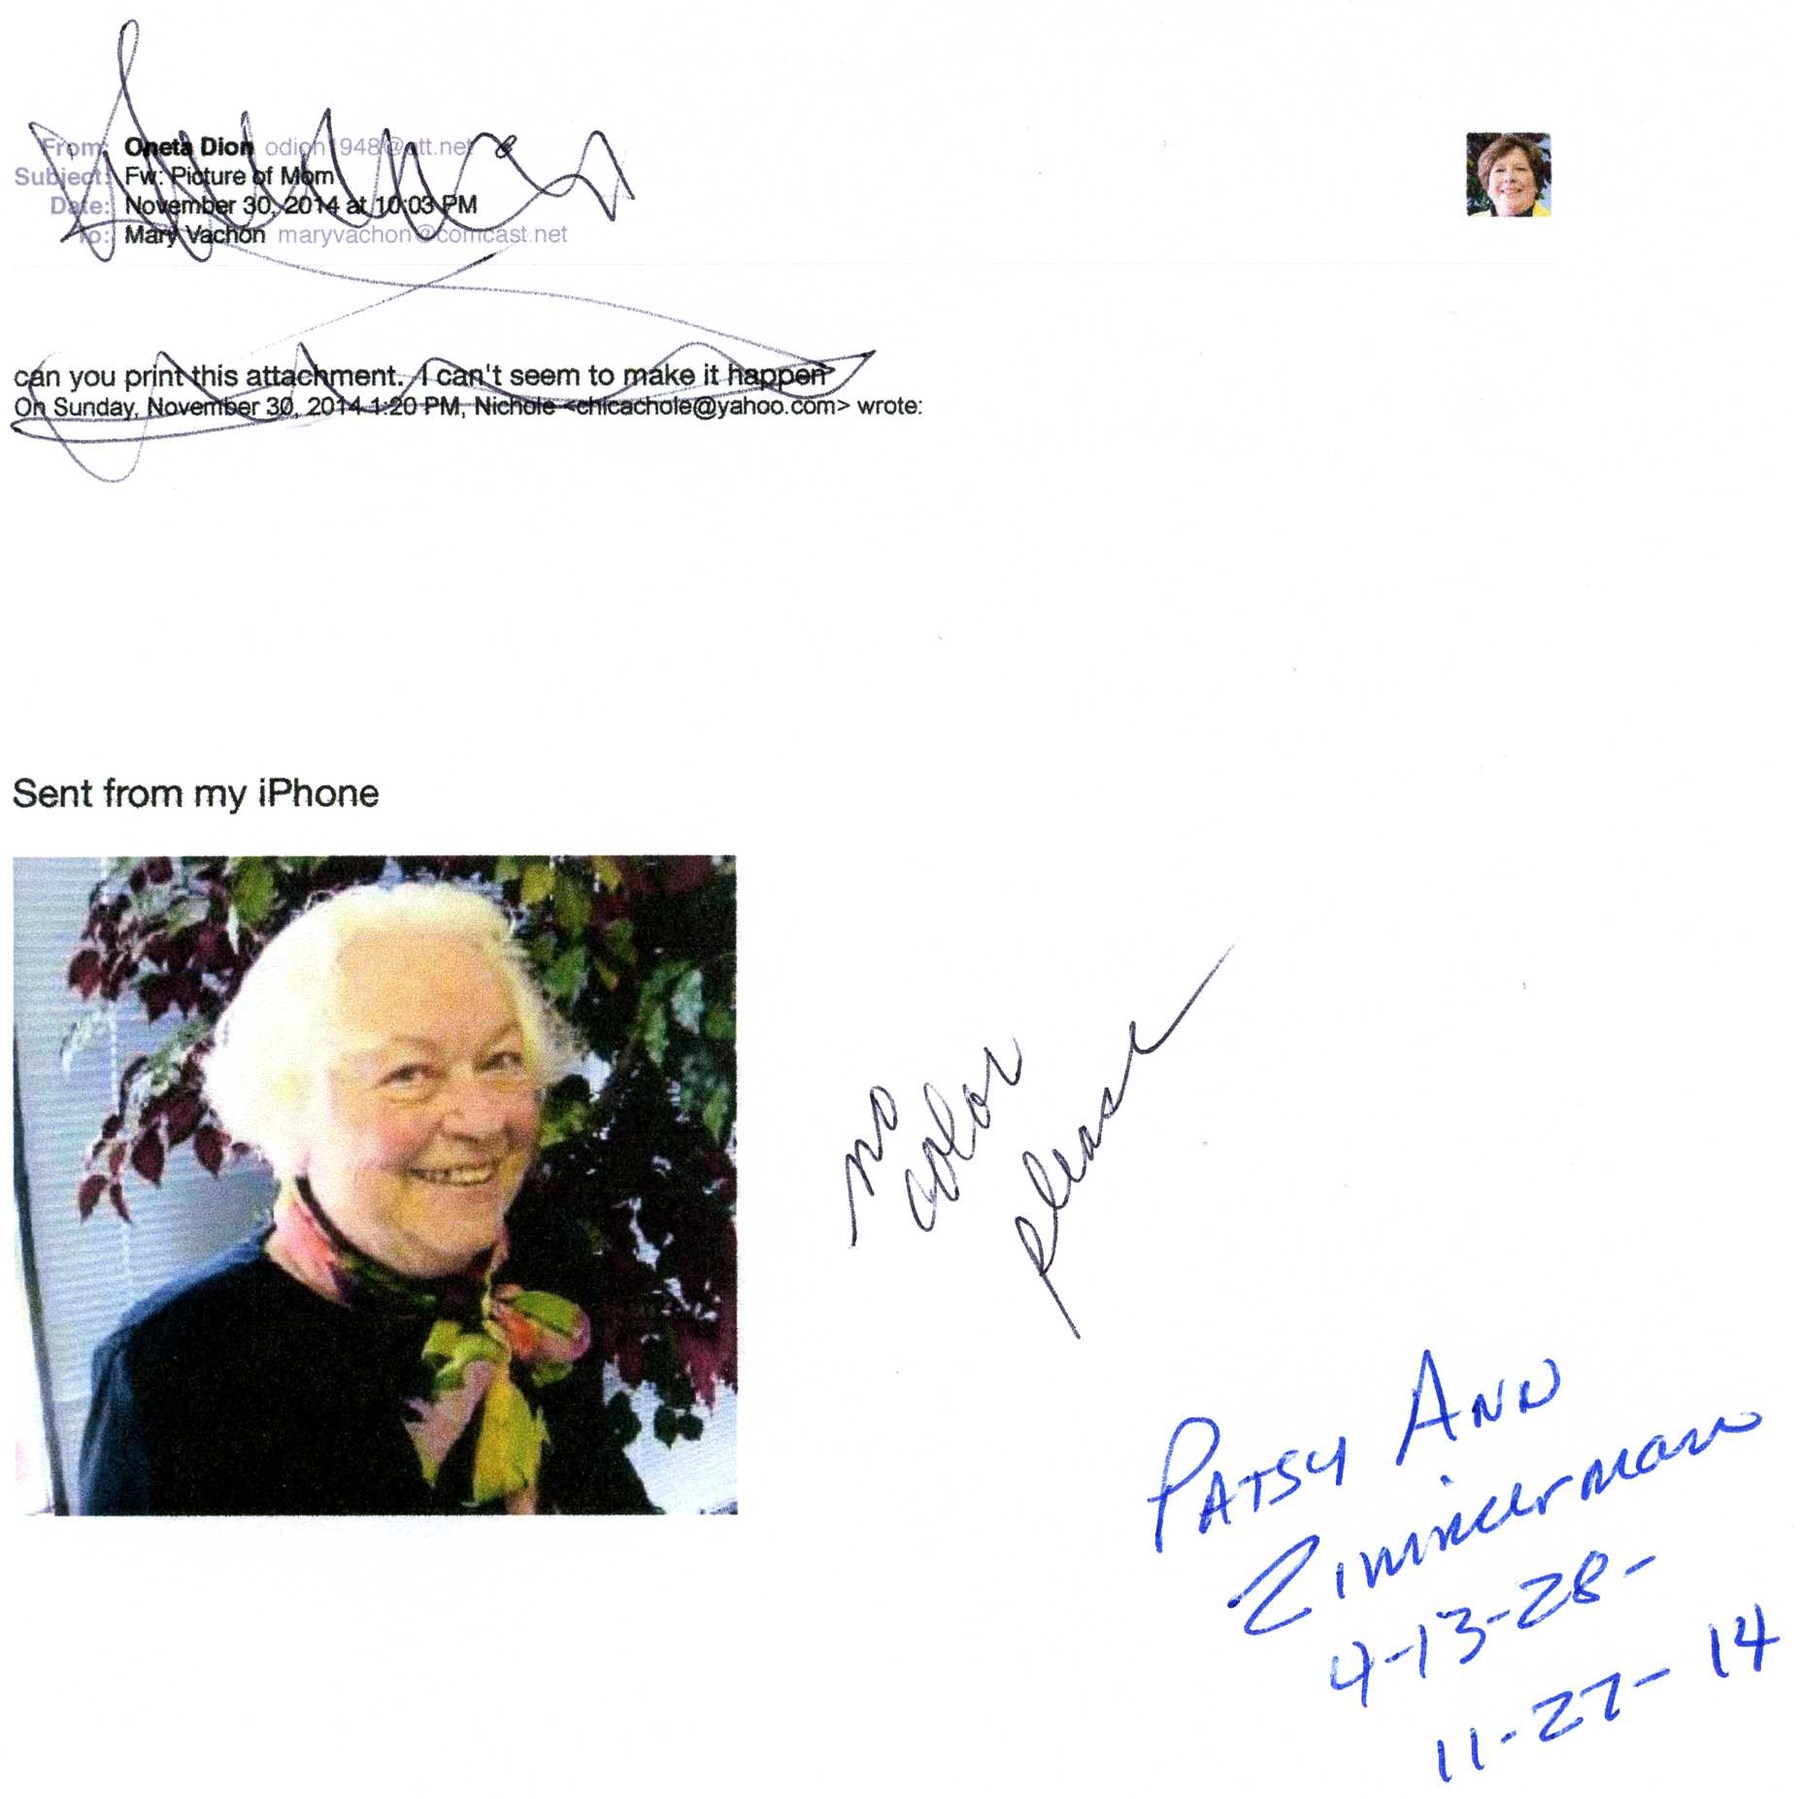 From: Oneta Dion odion1948@att.net
Subject: Fw: Picture of Mom
Date: November 30, 2014 at 10:03 PM
To: Mary Vachon maryvachon@comcast.net
can you print this attachment. I can't seem to make it happen
On Sunday, November 30, 2014 1:20 PM, Nichole <chicachole@yahoo.com> wrote:
Sent from my iPhone
no
color
please
Patsy Ann
Zimmerman
4-13-28-
11-27-14